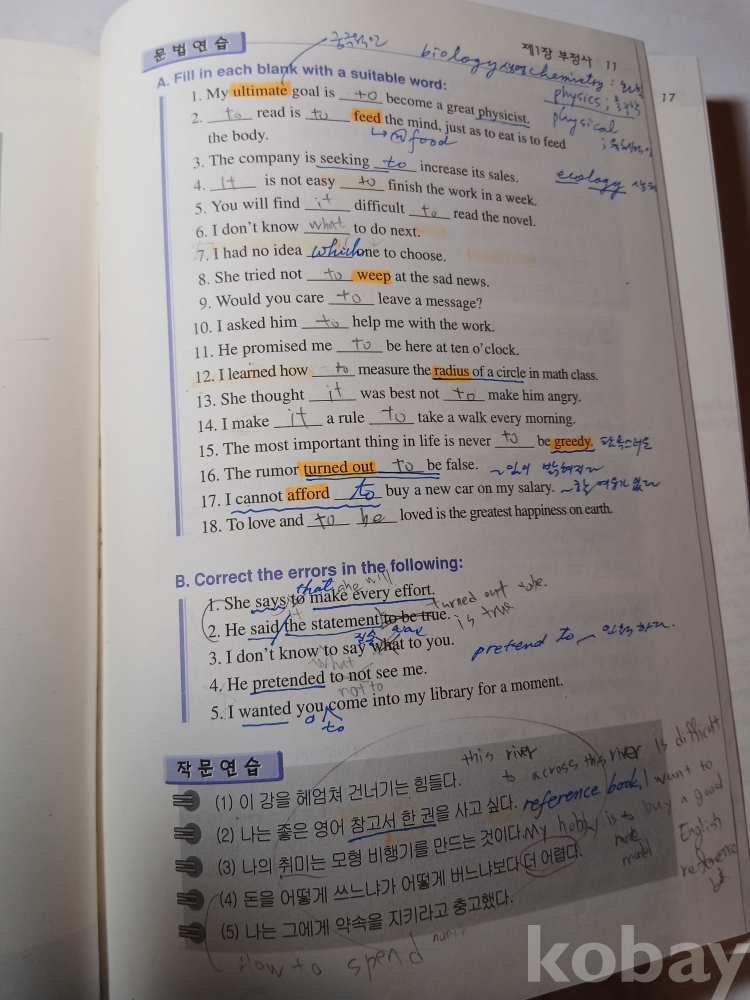 문법연습
제1장 부정사 11
biology
chemistry :
physics ;
physical
17
A. Fill in each blank with a suitable word:
1. My ultimate goal is to become a great physicist.
2. to read is to feed the mind, just as to eat is to feed
the body.
food
3. The company is seeking to increase its sales.
ecology
4. It is not easy to finish the work in a week.
5. You will find it difficult to read the novel.
6. I don't know what to do next.
7. I had no idea which one to choose.
8. She tried not to weep at the sad news.
9. Would you care to leave a message?
10. I asked him to help me with the work.
11. He promised me to be here at ten o'clock.
12. I learned how to measure the radius of a circle in math class.
13. She thought it was best not to make him angry.
14. I make it a rule to take a walk every morning.
15. The most important thing in life is never to be greedy.
16. The rumor turned out to be false.
17. I cannot afford to buy a new car on my salary.
18. To love and to be loved is the greatest happiness on earth.
B. Correct the errors in the following:
that she will
1. She says to make every effort.
turned out
2. He said the statement to be true.
is true
3. I don't know to say what to you.
what
pretend to
4. He pretended to not see me.
not to
5. I wanted you come into my library for a moment.
to
작문연습
this river
(1) 이 강을 헤엄쳐 건너기는 힘들다.
to across this river is difficult
(2) 나는 좋은 영어 참고서 한 권을 사고 싶다.
reference book, I want to buy a good English reference
(3) 나의 취미는 모형 비행기를 만드는 것이다.
My hobby is to make model
(4) 돈을 어떻게 쓰느냐가 어떻게 버느냐보다 더 어렵다.
(5) 나는 그에게 약속을 지키라고 충고했다.
How to spend
kobay